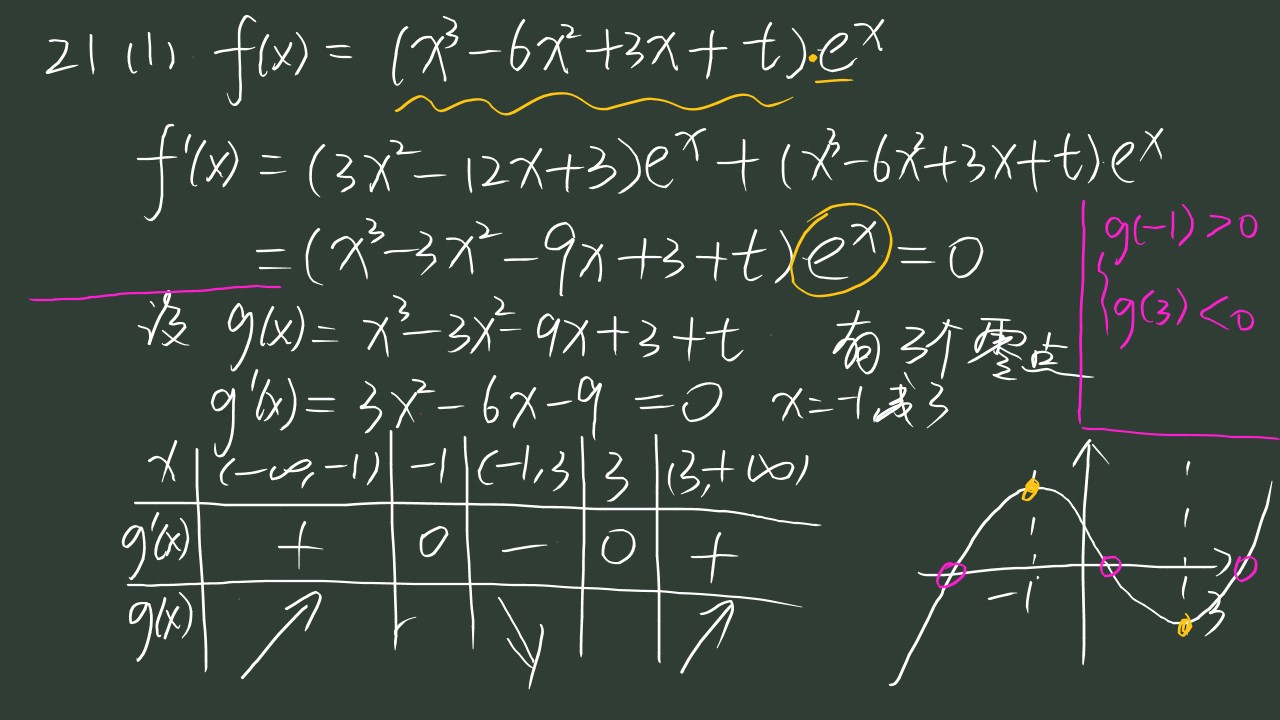 21 (1). f(x) = (x³-6x²+3x+t)·eˣ
f'(x) = (3x²-12x+3)eˣ+(x³-6x²+3x+t)·eˣ
=(x³-3x²-9x+3+t)eˣ=0
g(-1)>0
g(3)<0
设 g(x)= x³-3x²-9x+3+t 有3个零点
g'(x)= 3x²-6x-9 =0 x=-1或3
x (-∞,-1) -1 (-1,3 3 (3,+∞)
g'(x) + 0 - 0 +
g(x) ↗ ↘ ↗
-1 3